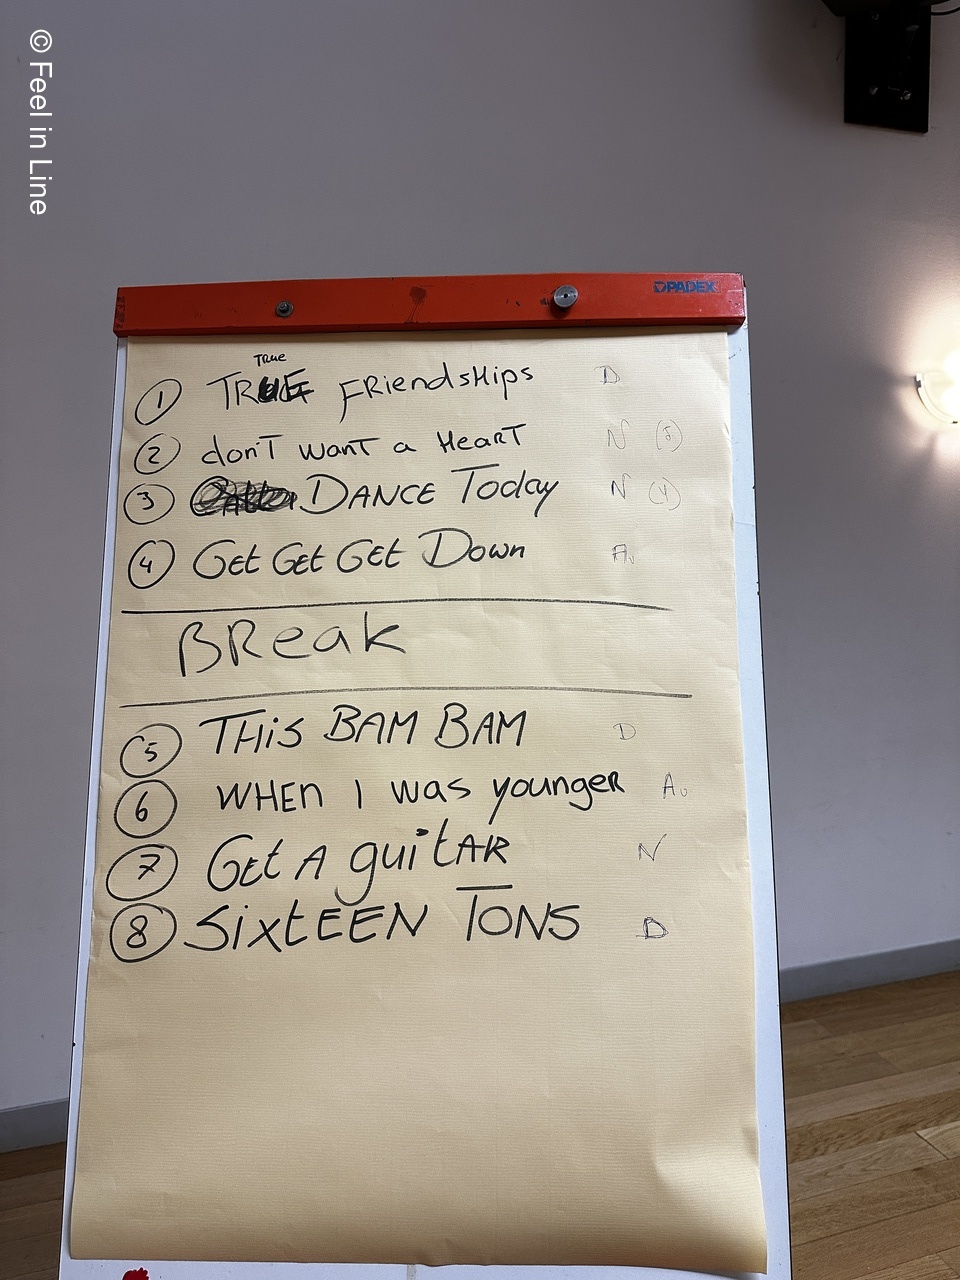 © Feel in Line
DPADEX
True
① TRUE FRiendsHips D
② don'T want a HeaRT N (5)
③ DANCE Today N (4)
④ Get Get Get Down Au
BReak
⑤ THiS BAM BAM D
⑥ WHEn I was youngeR Au
⑦ Get A guitAR N
⑧ SixtEEN TONS D